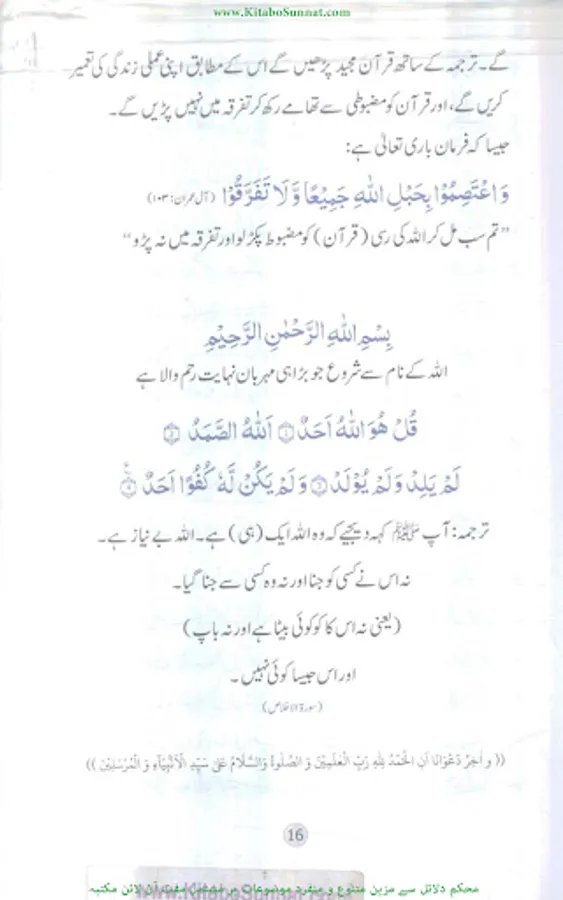 www.KitaboSunnat.com
گے۔ ترجمہ کے ساتھ قرآن مجید پڑھیں گے اس کے مطابق اپنی عملی زندگی کی تعمیر
کریں گے، اور قرآن کو مضبوطی سے تھامے رکھ کر تفرقہ میں نہیں پڑیں گے۔
جیسا کہ فرمان باری تعالیٰ ہے:
وَاعْتَصِمُوْا بِحَبْلِ اللّٰهِ جَمِيْعًا وَّلَا تَفَرَّقُوْا (آل عمران: ۱۰۳)
”تم سب مل کر اللہ کی رسی (قرآن) کو مضبوط پکڑ لو اور تفرقہ میں نہ پڑو“
بِسْمِ اللّٰهِ الرَّحْمٰنِ الرَّحِيْمِ
اللہ کے نام سے شروع جو بڑا ہی مہربان نہایت رحم والا ہے
قُلْ هُوَ اللّٰهُ اَحَدٌ ۝۱ اَللّٰهُ الصَّمَدُ ۝۲
لَمْ يَلِدْ وَلَمْ يُوْلَدْ ۝۳ وَلَمْ يَكُنْ لَّهٗ كُفُوًا اَحَدٌ ۝۴
ترجمہ: آپ ﷺ کہہ دیجیے کہ وہ اللہ ایک (ہی) ہے۔ اللہ بے نیاز ہے۔
نہ اس نے کسی کو جنا اور نہ وہ کسی سے جنا گیا۔
(یعنی نہ اس کا کوکوئی بیٹا ہے اور نہ باپ)
اور اس جیسا کوئی نہیں۔
(سورۃ الاخلاص)
(( وَ اٰخِرُ دَعْوَانَا اَنِ الْحَمْدُ لِلّٰهِ رَبِّ الْعٰلَمِيْنَ وَ الصَّلٰوةُ وَالسَّلَامُ عَلٰى سَيِّدِ الْاَنْبِيَآءِ وَ الْمُرْسَلِيْنَ ))
16
محکم دلائل سے مزین متنوع و منفرد موضوعات پر مشتمل مفت آن لائن مکتبہ
www.KitaboSunnat.com